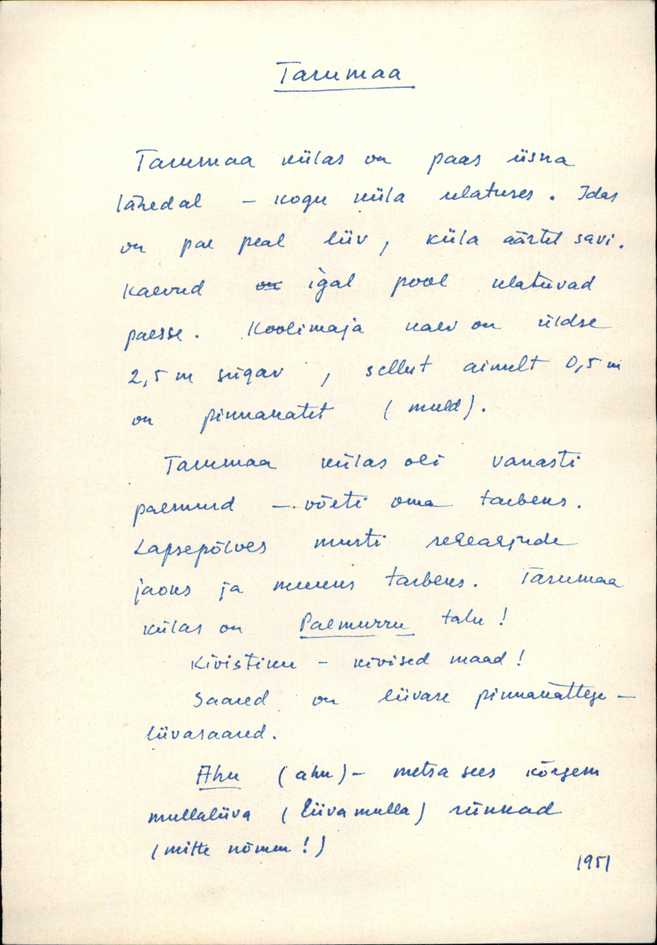 Tarumaa
Tarumaa külas on paas üsna
lähedal – kogu küla ulatuses. Idas
on pae peal liiv, küla äärtel savi.
Kaevud on igal pool ulatuvad
paesse. Koolimaja kaev on üldse
2,5 m sügav, sellest ainult 0,5 m
on pinnakatet (muld).
Tarumaa külas oli vanasti
paemurd – võeti oma tarbeks.
Lapsepõlves murti reheahjude
jaoks ja muuks tarbeks. Tarumaa
külas on Paemurru talu!
Kivistiku – kivised maad!
Saared on liivase pinnakattega –
liivasaared.
Ahu (ahu) – metsa sees kõrgem
mullaliiva (liivamulla) künkad
(mitte nõmm!)
1951